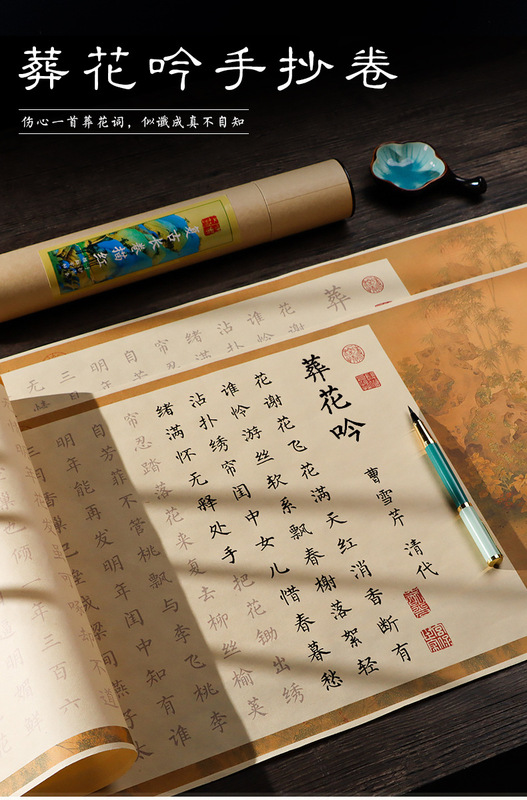 葬花吟手抄卷
伤心一首葬花词，似谶成真不自知
复古长卷描红
葬
花谢
谁怜
沾扑
绪满
帘忍
自
明年
三
无
葬花吟
曹雪芹 清代
花谢花飞花满天红消香断有
谁怜游丝软系飘春榭落絮轻
沾扑绣帘闺中女儿惜春暮愁
绪满怀无释处手把花锄出绣
帘忍踏落花来复去柳丝榆荚
自芳菲不管桃飘与李飞桃李
明年能再发明年闺中知有谁
香巢已垒成梁间燕子太
巢也倾一年三百六